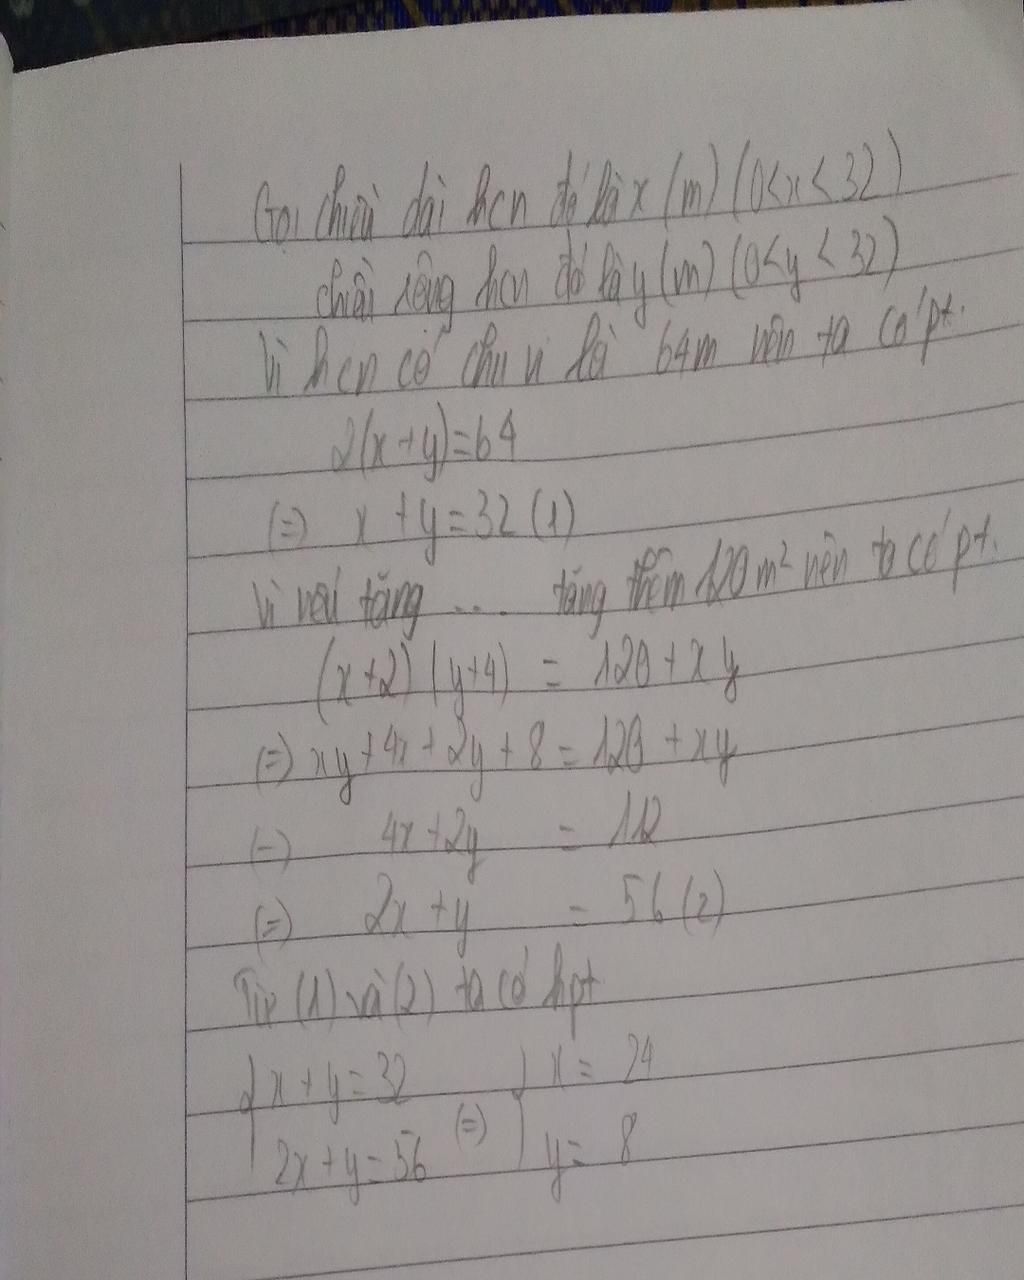 Gọi chiều dài hcn đó là x (m) (0<x<32)
chiều rộng hcn đó là y (m) (0<y<32)
Vì hcn có chu vi là 64m nên ta có pt.
2(x+y)=64
(=) x+y=32 (1)
Vì nếu tăng .... tăng thêm 120m² nên ta có pt.
(x+2)(y+4) = 120+xy
(=) xy+4x+2y+8=120+xy
(=) 4x+2y = 112
(=) 2x+y = 56 (2)
Từ (1) và (2) ta có hpt
{ x+y=32 (=) { x = 24
2x+y=56 y= 8